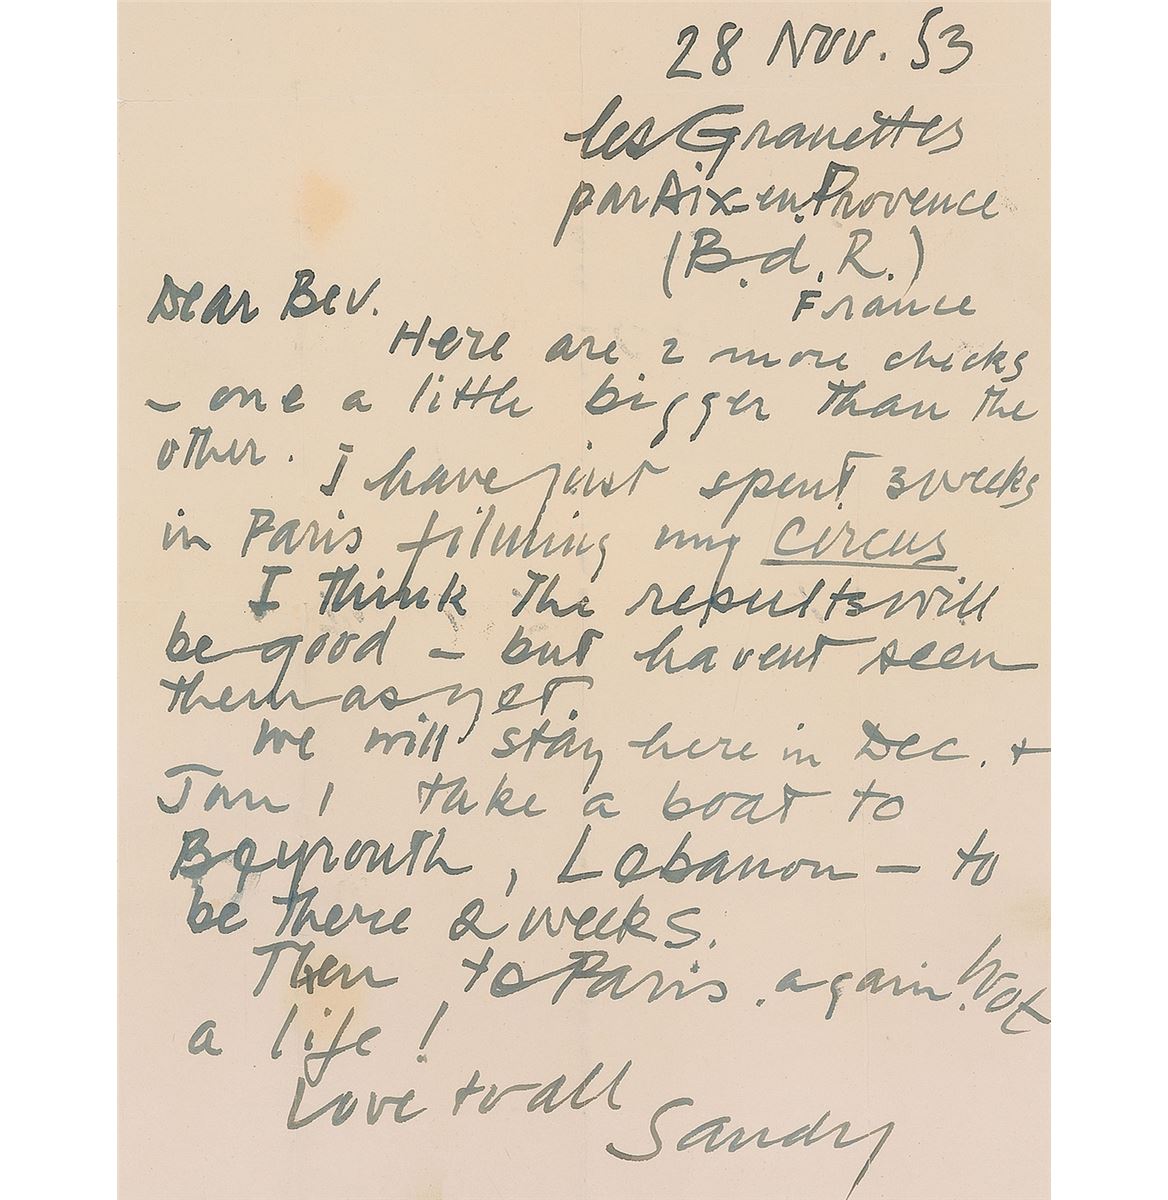 28 Nov. 53
les Granettes
par Aix-en-Provence
(B.d.R.)
France
Dear Bev.
Here are 2 more checks
– one a little bigger than the
other.
I have just spent 3 weeks
in Paris filming my circus
I think the results will
be good – but havent seen
them as yet
We will stay here in Dec. +
Jan, take a boat to
Beyrouth, Lebanon – to
be there 2 weeks.
Then to Paris again. Wot
a life!
Love to all
Sandy